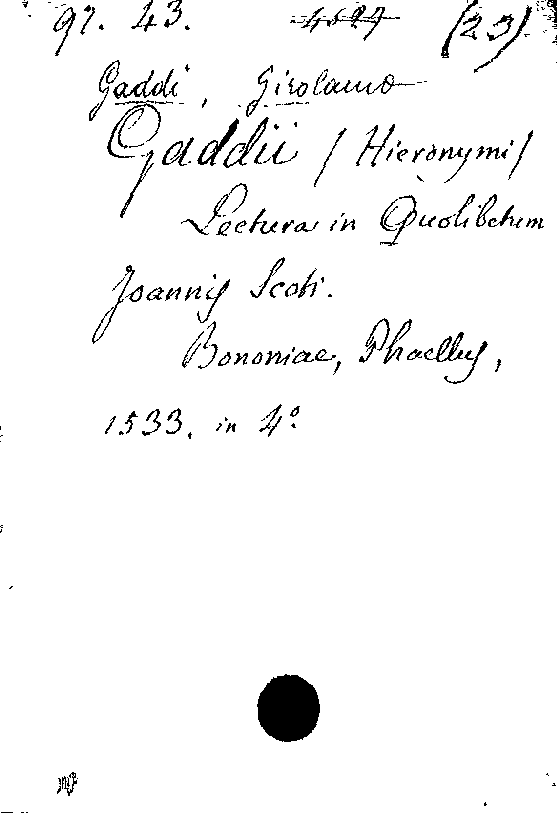 97. 43. 4527 (23)
Gaddi, Girolamo
Gaddii / Hieronymi /
Lectura in Quolibetum
Joannis Scoti.
Bononiae, Phaellus,
1533. in 4º